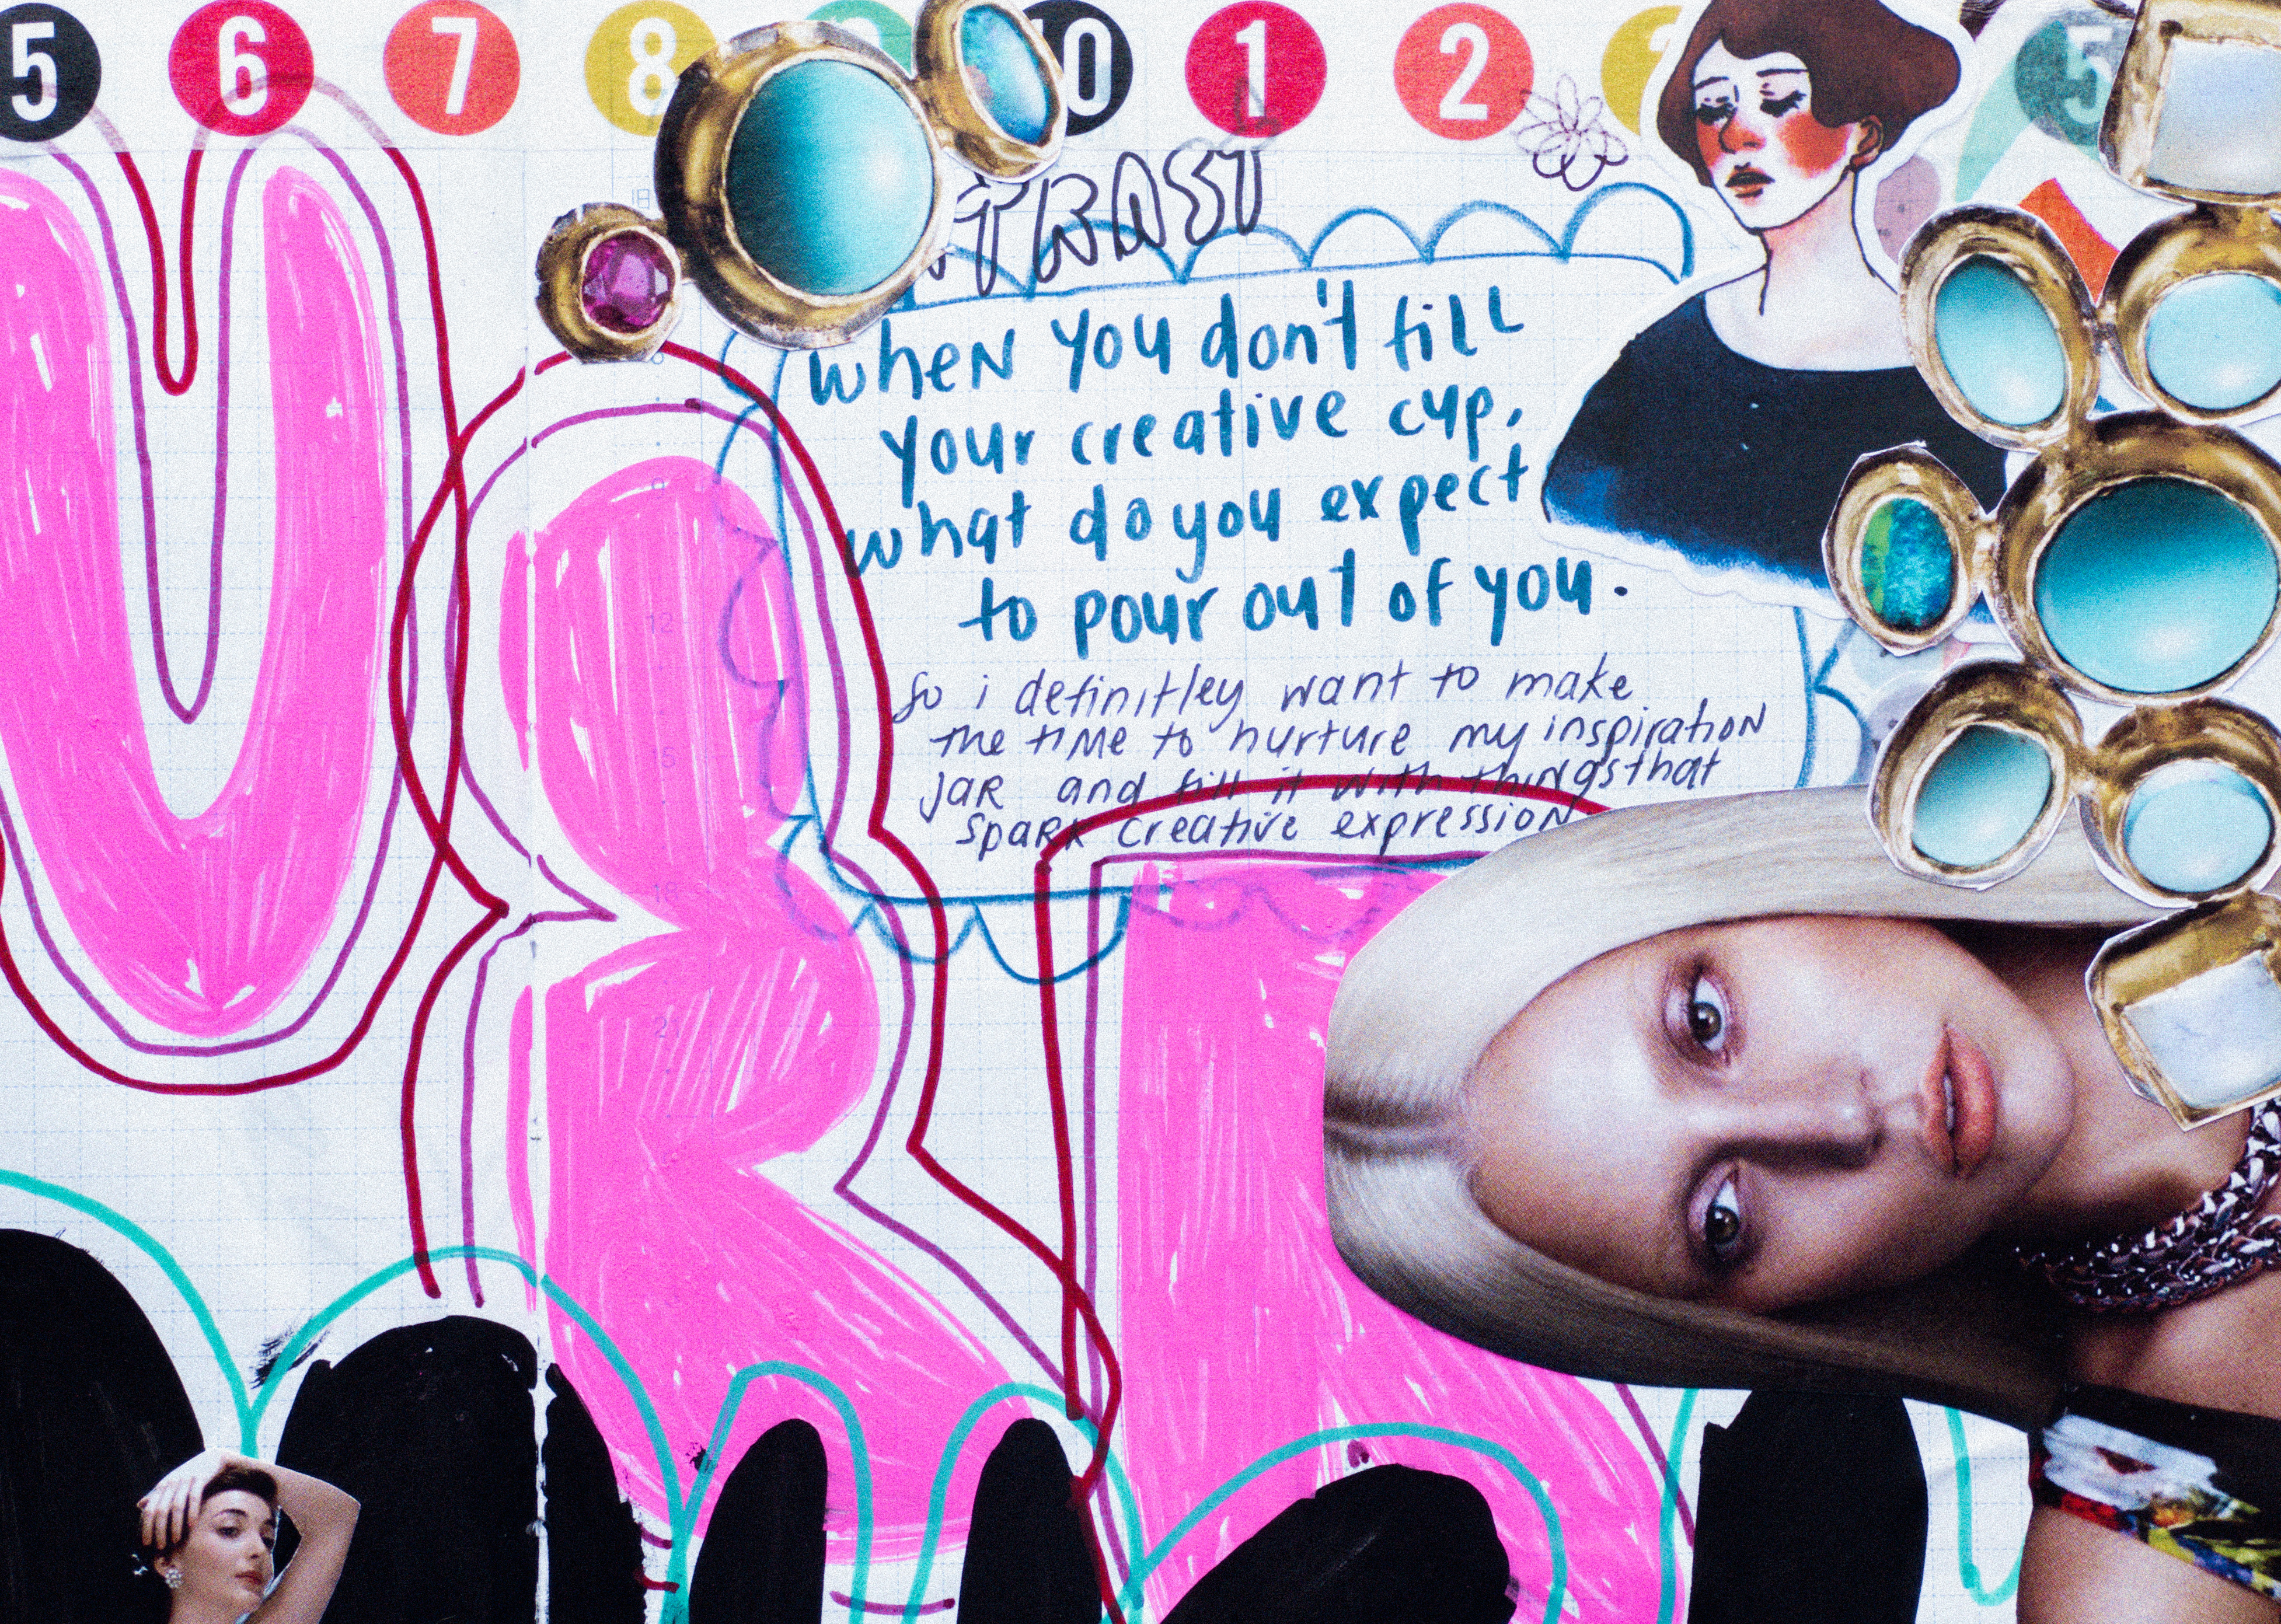 5 6 7 8 10 1 2 5
when you don't fill
your creative cup,
what do you expect
to pour out of you.
So i definitley want to make
the time to nurture my inspiration
jar and fill it with things that
spark creative expression